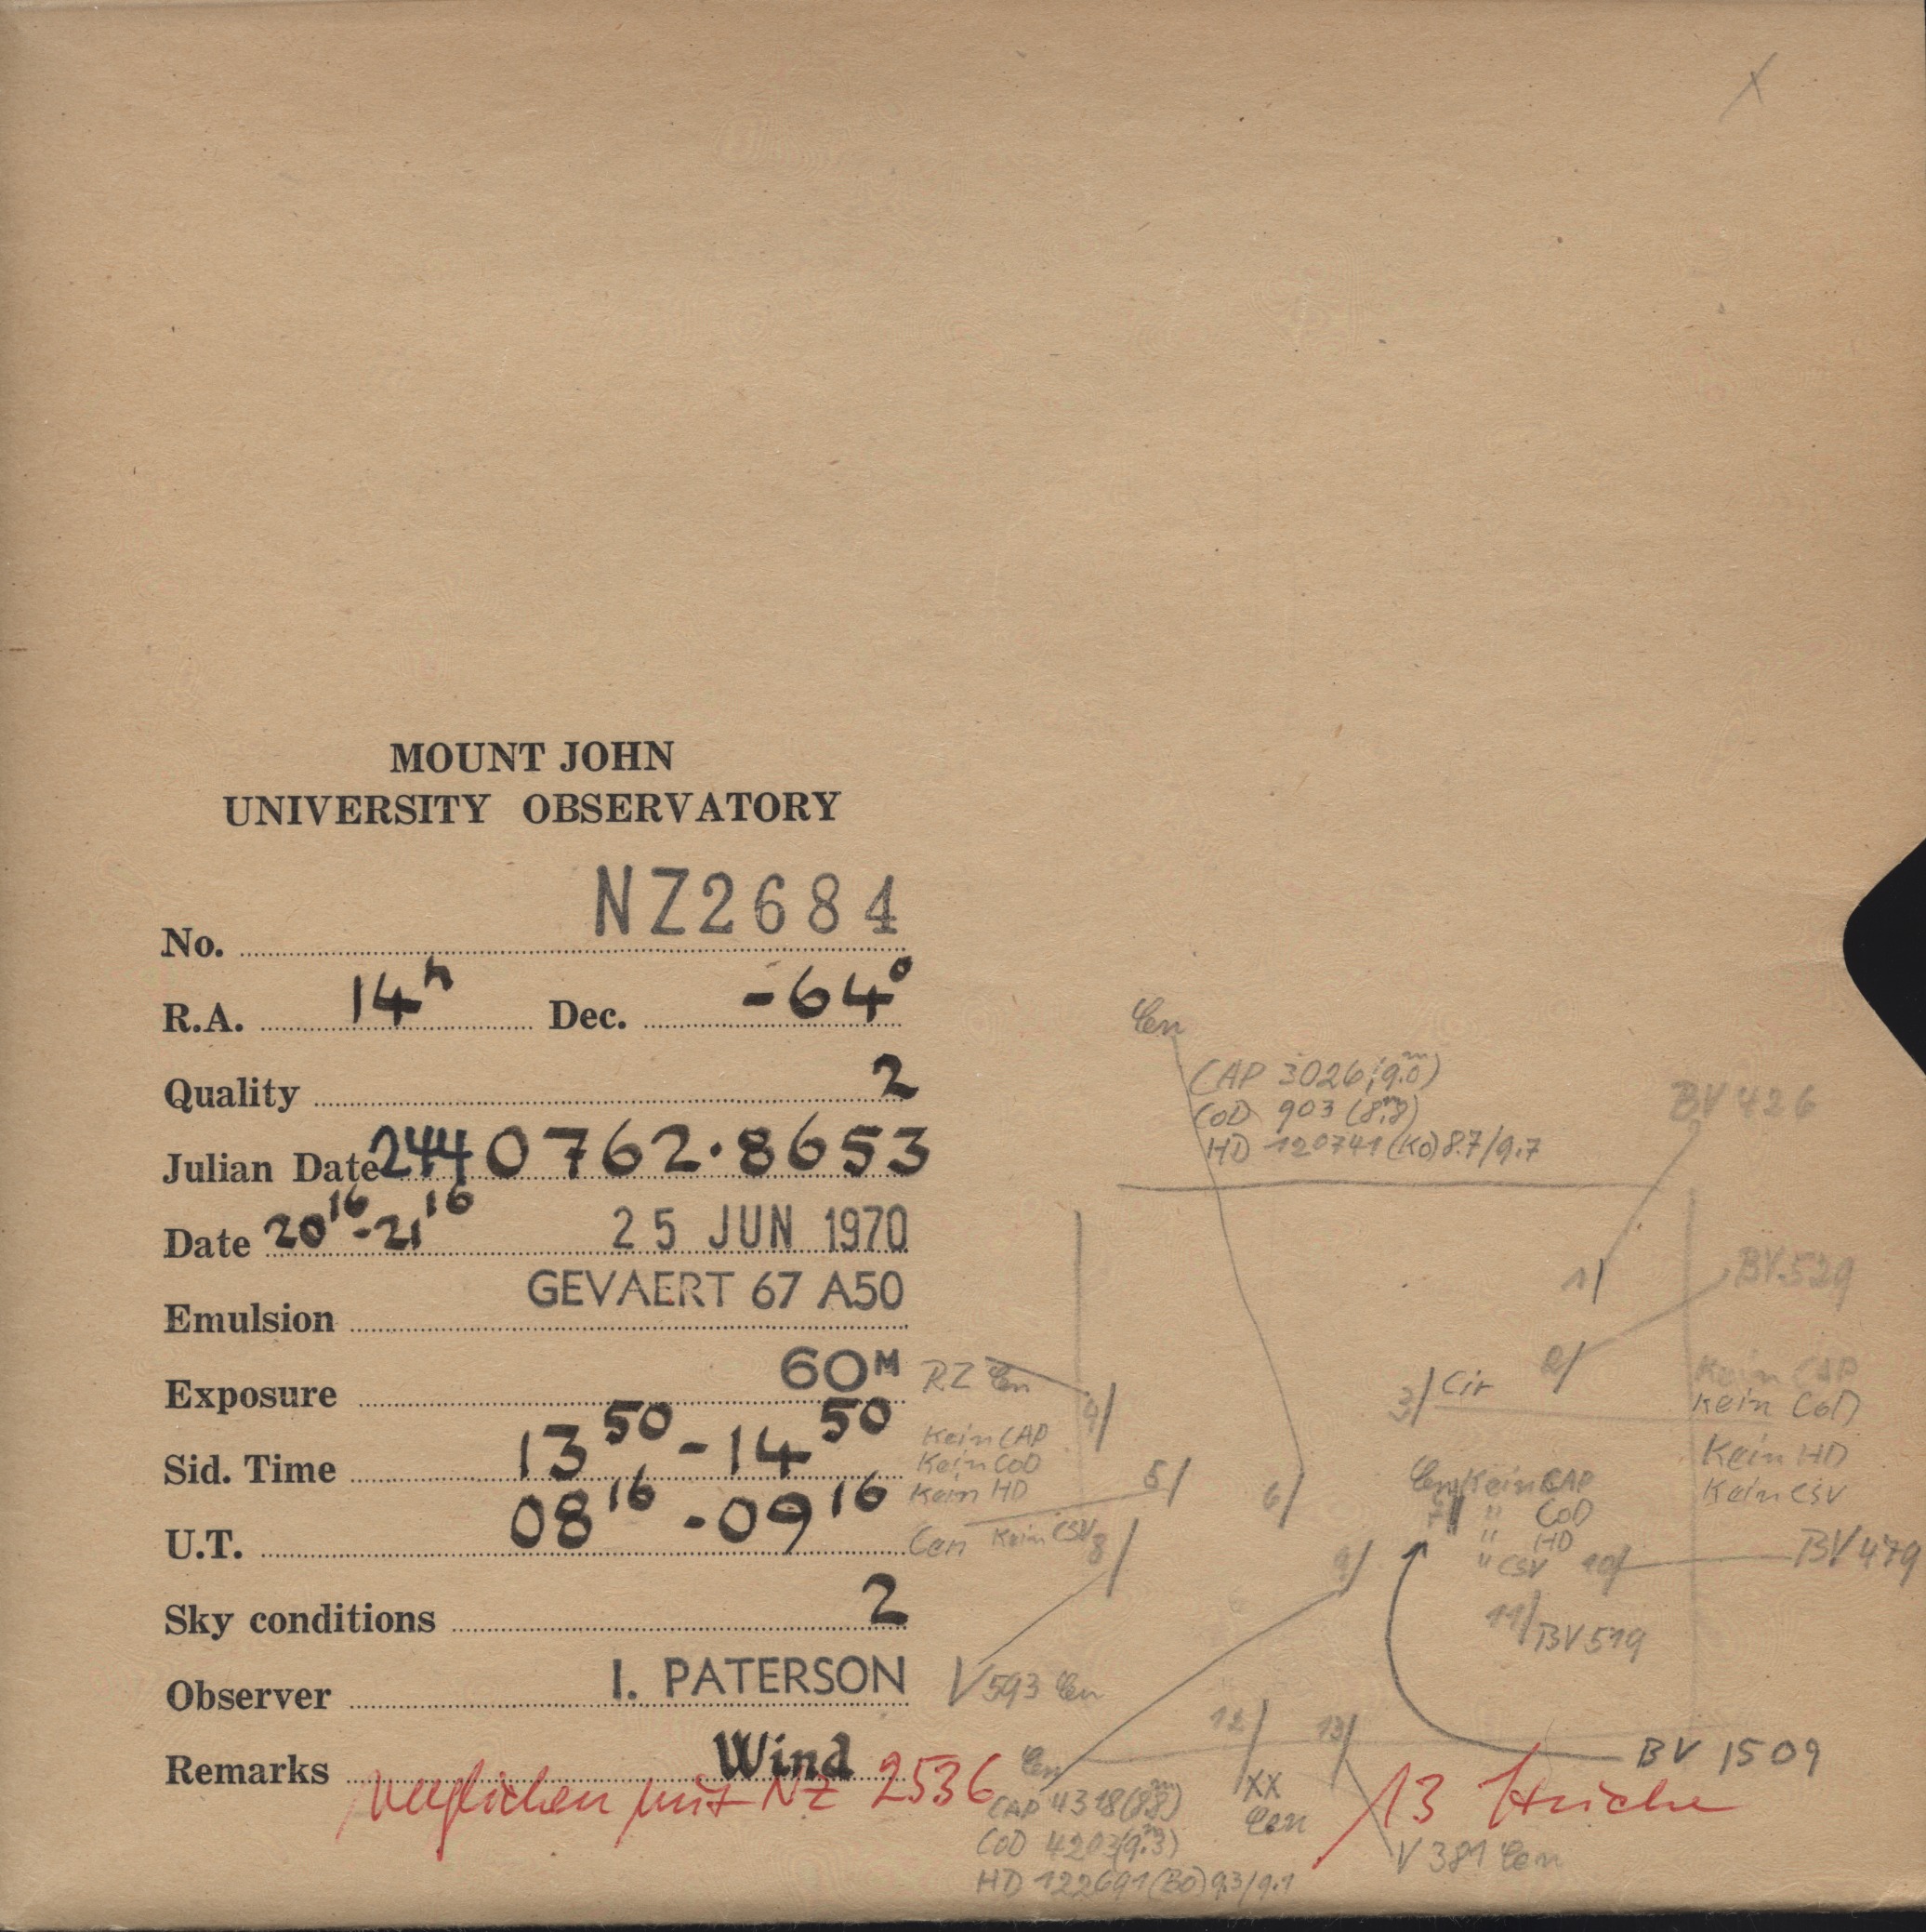 X
MOUNT JOHN
UNIVERSITY OBSERVATORY
No. NZ2684
R.A. 14h Dec. -64°
Quality 2
Julian Date 2440762.8653
Date 20 16 - 21 16 25 JUN 1970
Emulsion GEVAERT 67 A50
Exposure 60M
Sid. Time 13 50 - 14 50
U.T. 08 16 - 09 16
Sky conditions 2
Observer I. PATERSON
Remarks Wind
verglichen mit NZ 2536
13 Striche
Cen
CAP 3026; 9.0m)
CoD 903 (8.m8)
HD 120741 (K0) 8.7/9.7
BV 426
1
BV 529
2
3 Cir
Kein CAP
Kein CoD
Kein HD
Kein CSV
RZ Cen
4
Kein CAP
Kein CoD
Kein HD
Cen Kein CSV
5
6
Cen Kein CAP
7 " CoD
" HD
" CSV
8
9
10
BV 479
11 BV 519
V 593 Cen
12
13
BV 1509
Cen
CAP 4318 (8.m8)
CoD 4203 (9.m3)
HD 122691 (B0) 9.3/9.1
XX
Cen
V 381 Cen